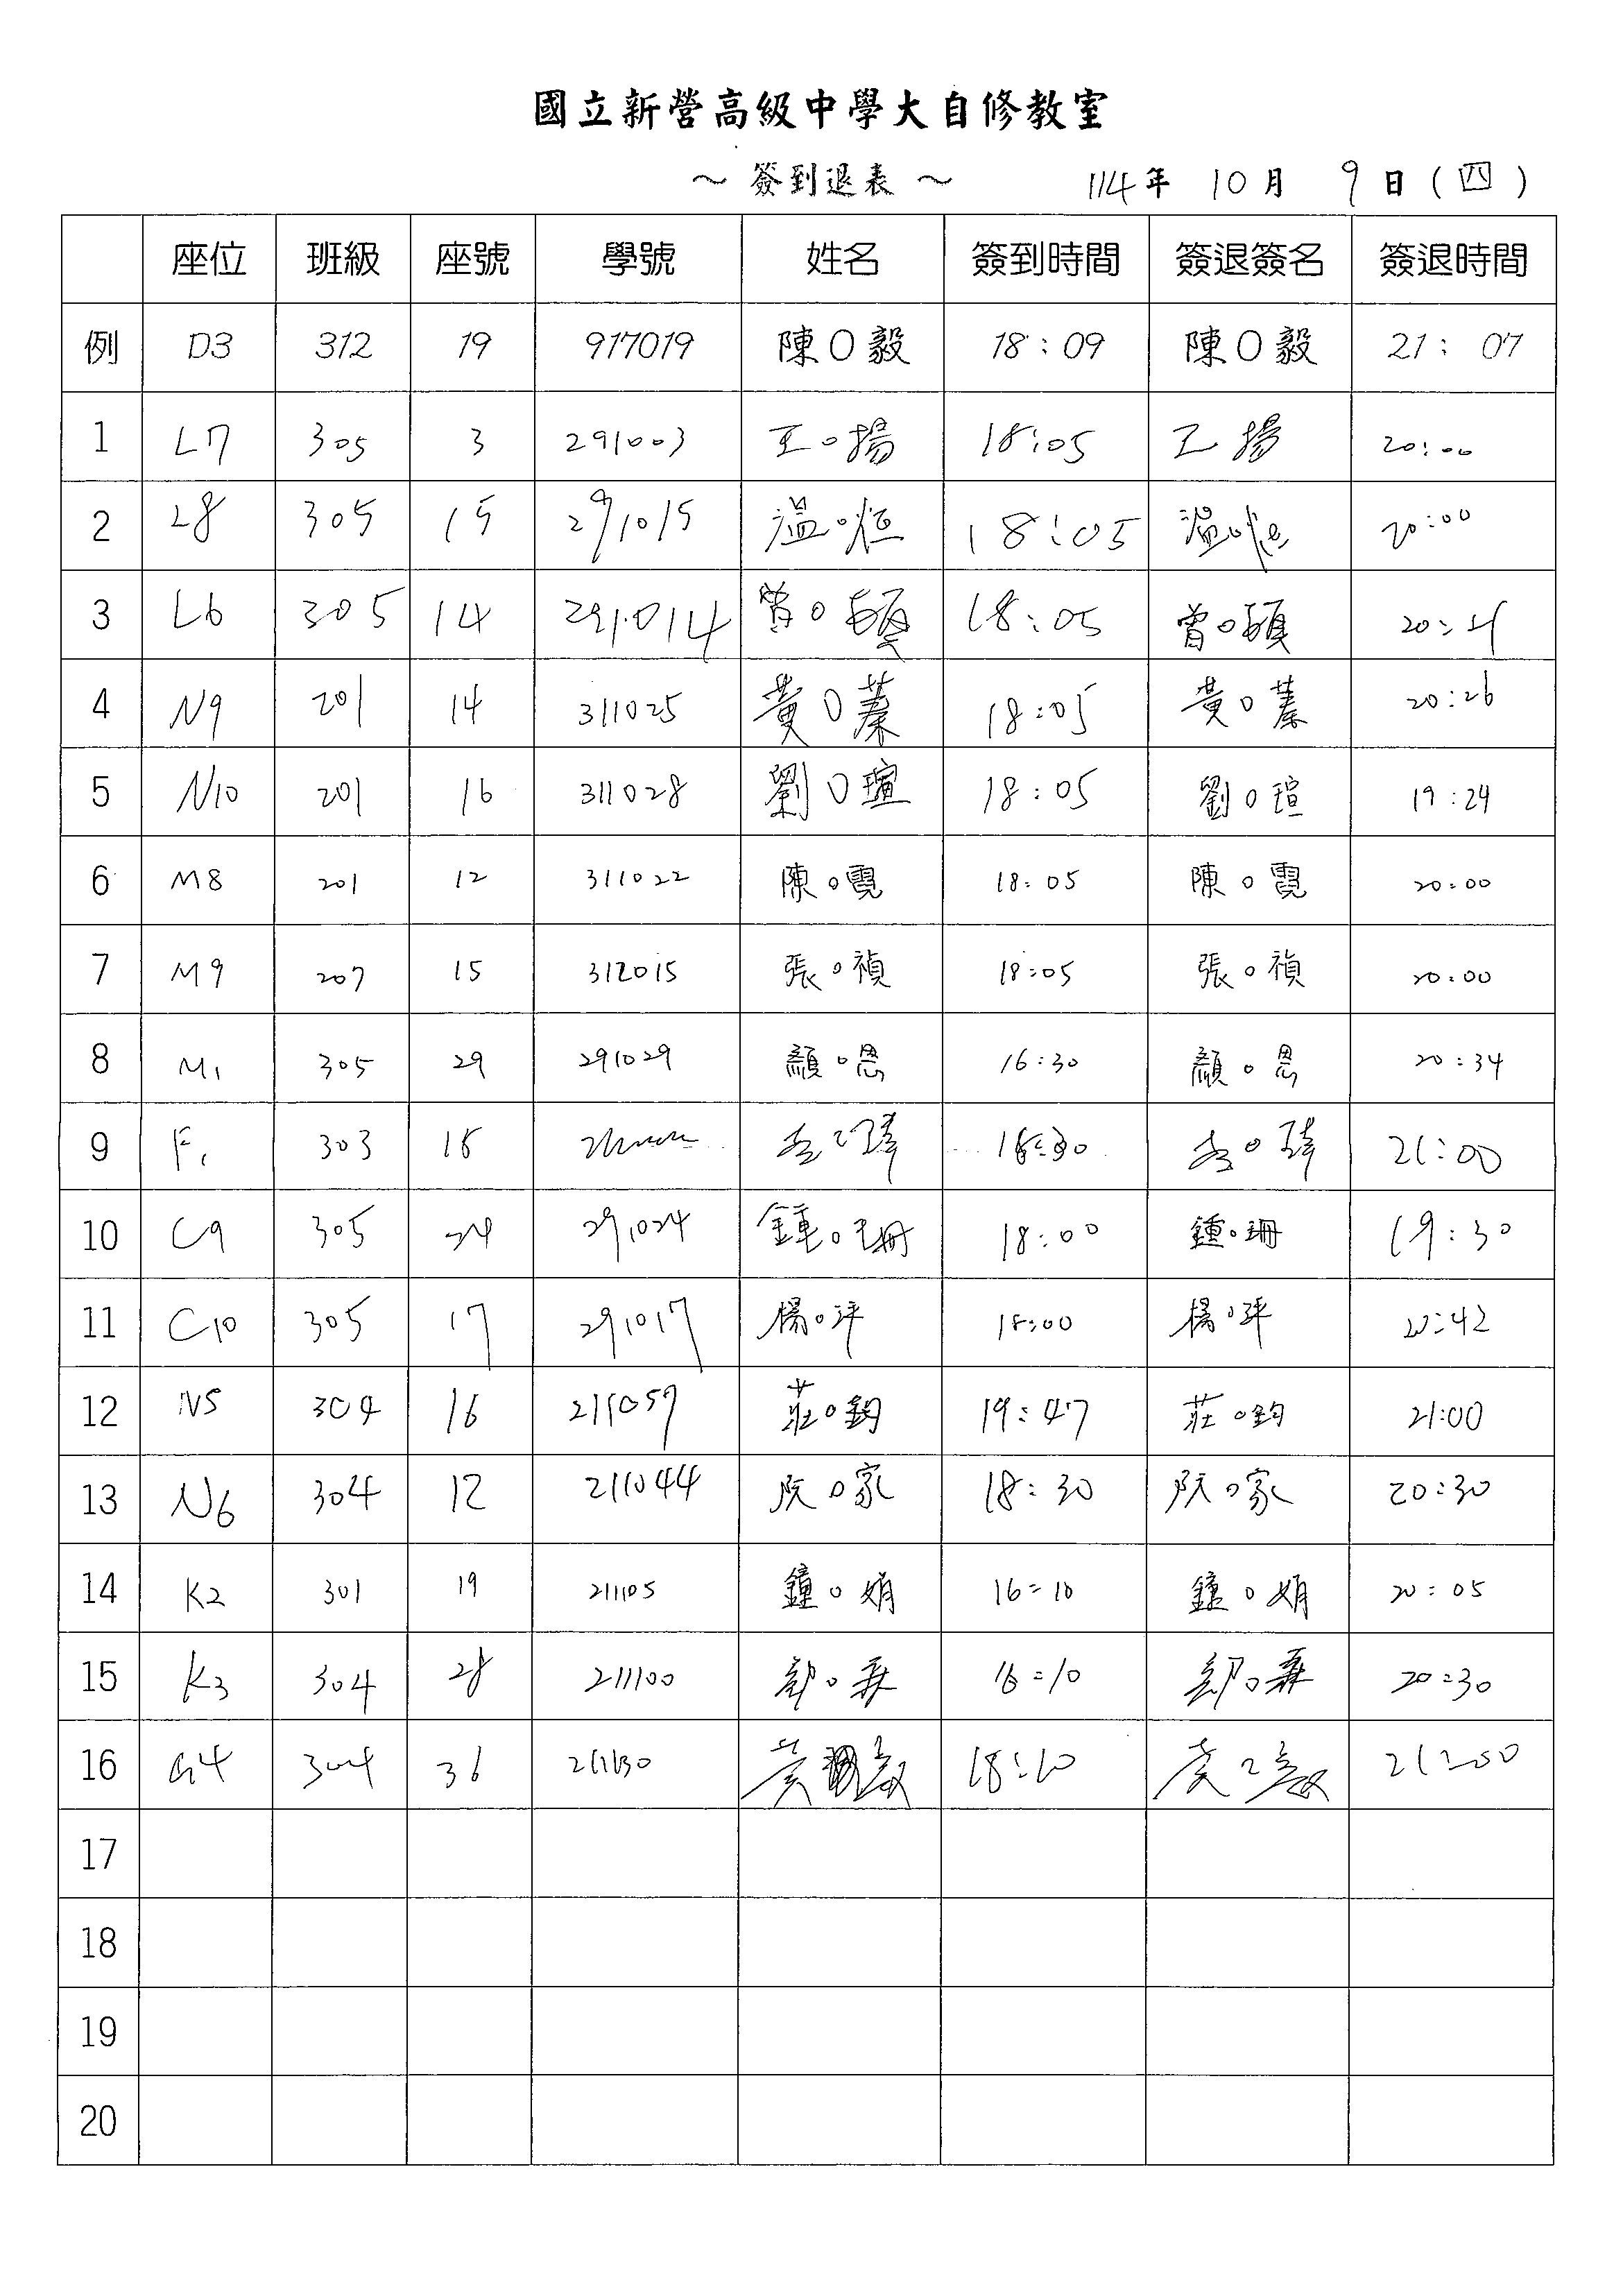 國立新營高級中學大自修教室
～ 簽到退表 ～ 114年 10月 9日(四)
座位 班級 座號 學號 姓名 簽到時間 簽退簽名 簽退時間
例 D3 312 19 917019 陳O毅 18:09 陳O毅 21:07
1 L7 305 3 291003 王o揚 18:05 王 揚 20:00
2 L8 305 15 291015 溫o恆 18:05 溫o恆 20:00
3 L6 305 14 291014 曾o碩 18:05 曾o碩 20:21
4 N9 201 14 311025 黃O蓁 18:05 黃O蓁 20:26
5 N10 201 16 311028 劉O瑄 18:05 劉O瑄 19:24
6 M8 201 12 311022 陳o霓 18:05 陳o霓 20:00
7 M9 207 15 312015 張o禎 18:05 張o禎 20:00
8 M1 305 29 291029 顏o恩 16:30 顏o恩 20:34
9 F1 303 18 李o瑋 李o瑋 21:00
10 C9 305 24 291024 鍾o珊 18:00 鍾o珊 19:30
11 C10 305 17 291017 楊o坪 18:00 楊o坪 20:42
12 N5 304 16 211057 莊o鈞 19:47 莊o鈞 21:00
13 N6 304 12 211044 阮o家 18:30 阮o家 20:30
14 K2 301 19 211105 鐘o娟 16:10 鐘o娟 20:05
15 K3 304 28 211100 鄒o霖 16:10 鄒o霖 20:30
16 G4 304 36 211130 黃 18:10 黃 21:00
17
18
19
20